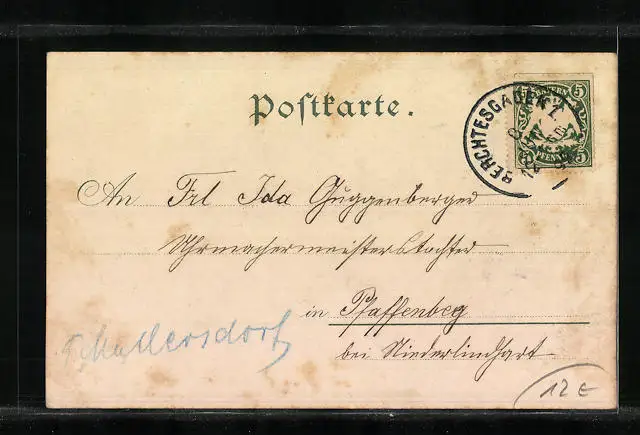 Postkarte.
BERCHTESGADEN 1
5 5
PFENNIG
An Frl Ida Guggenberger
Uhrmachermeisterstochter
in Pfaffenberg
bei Niederlindhart
12 €